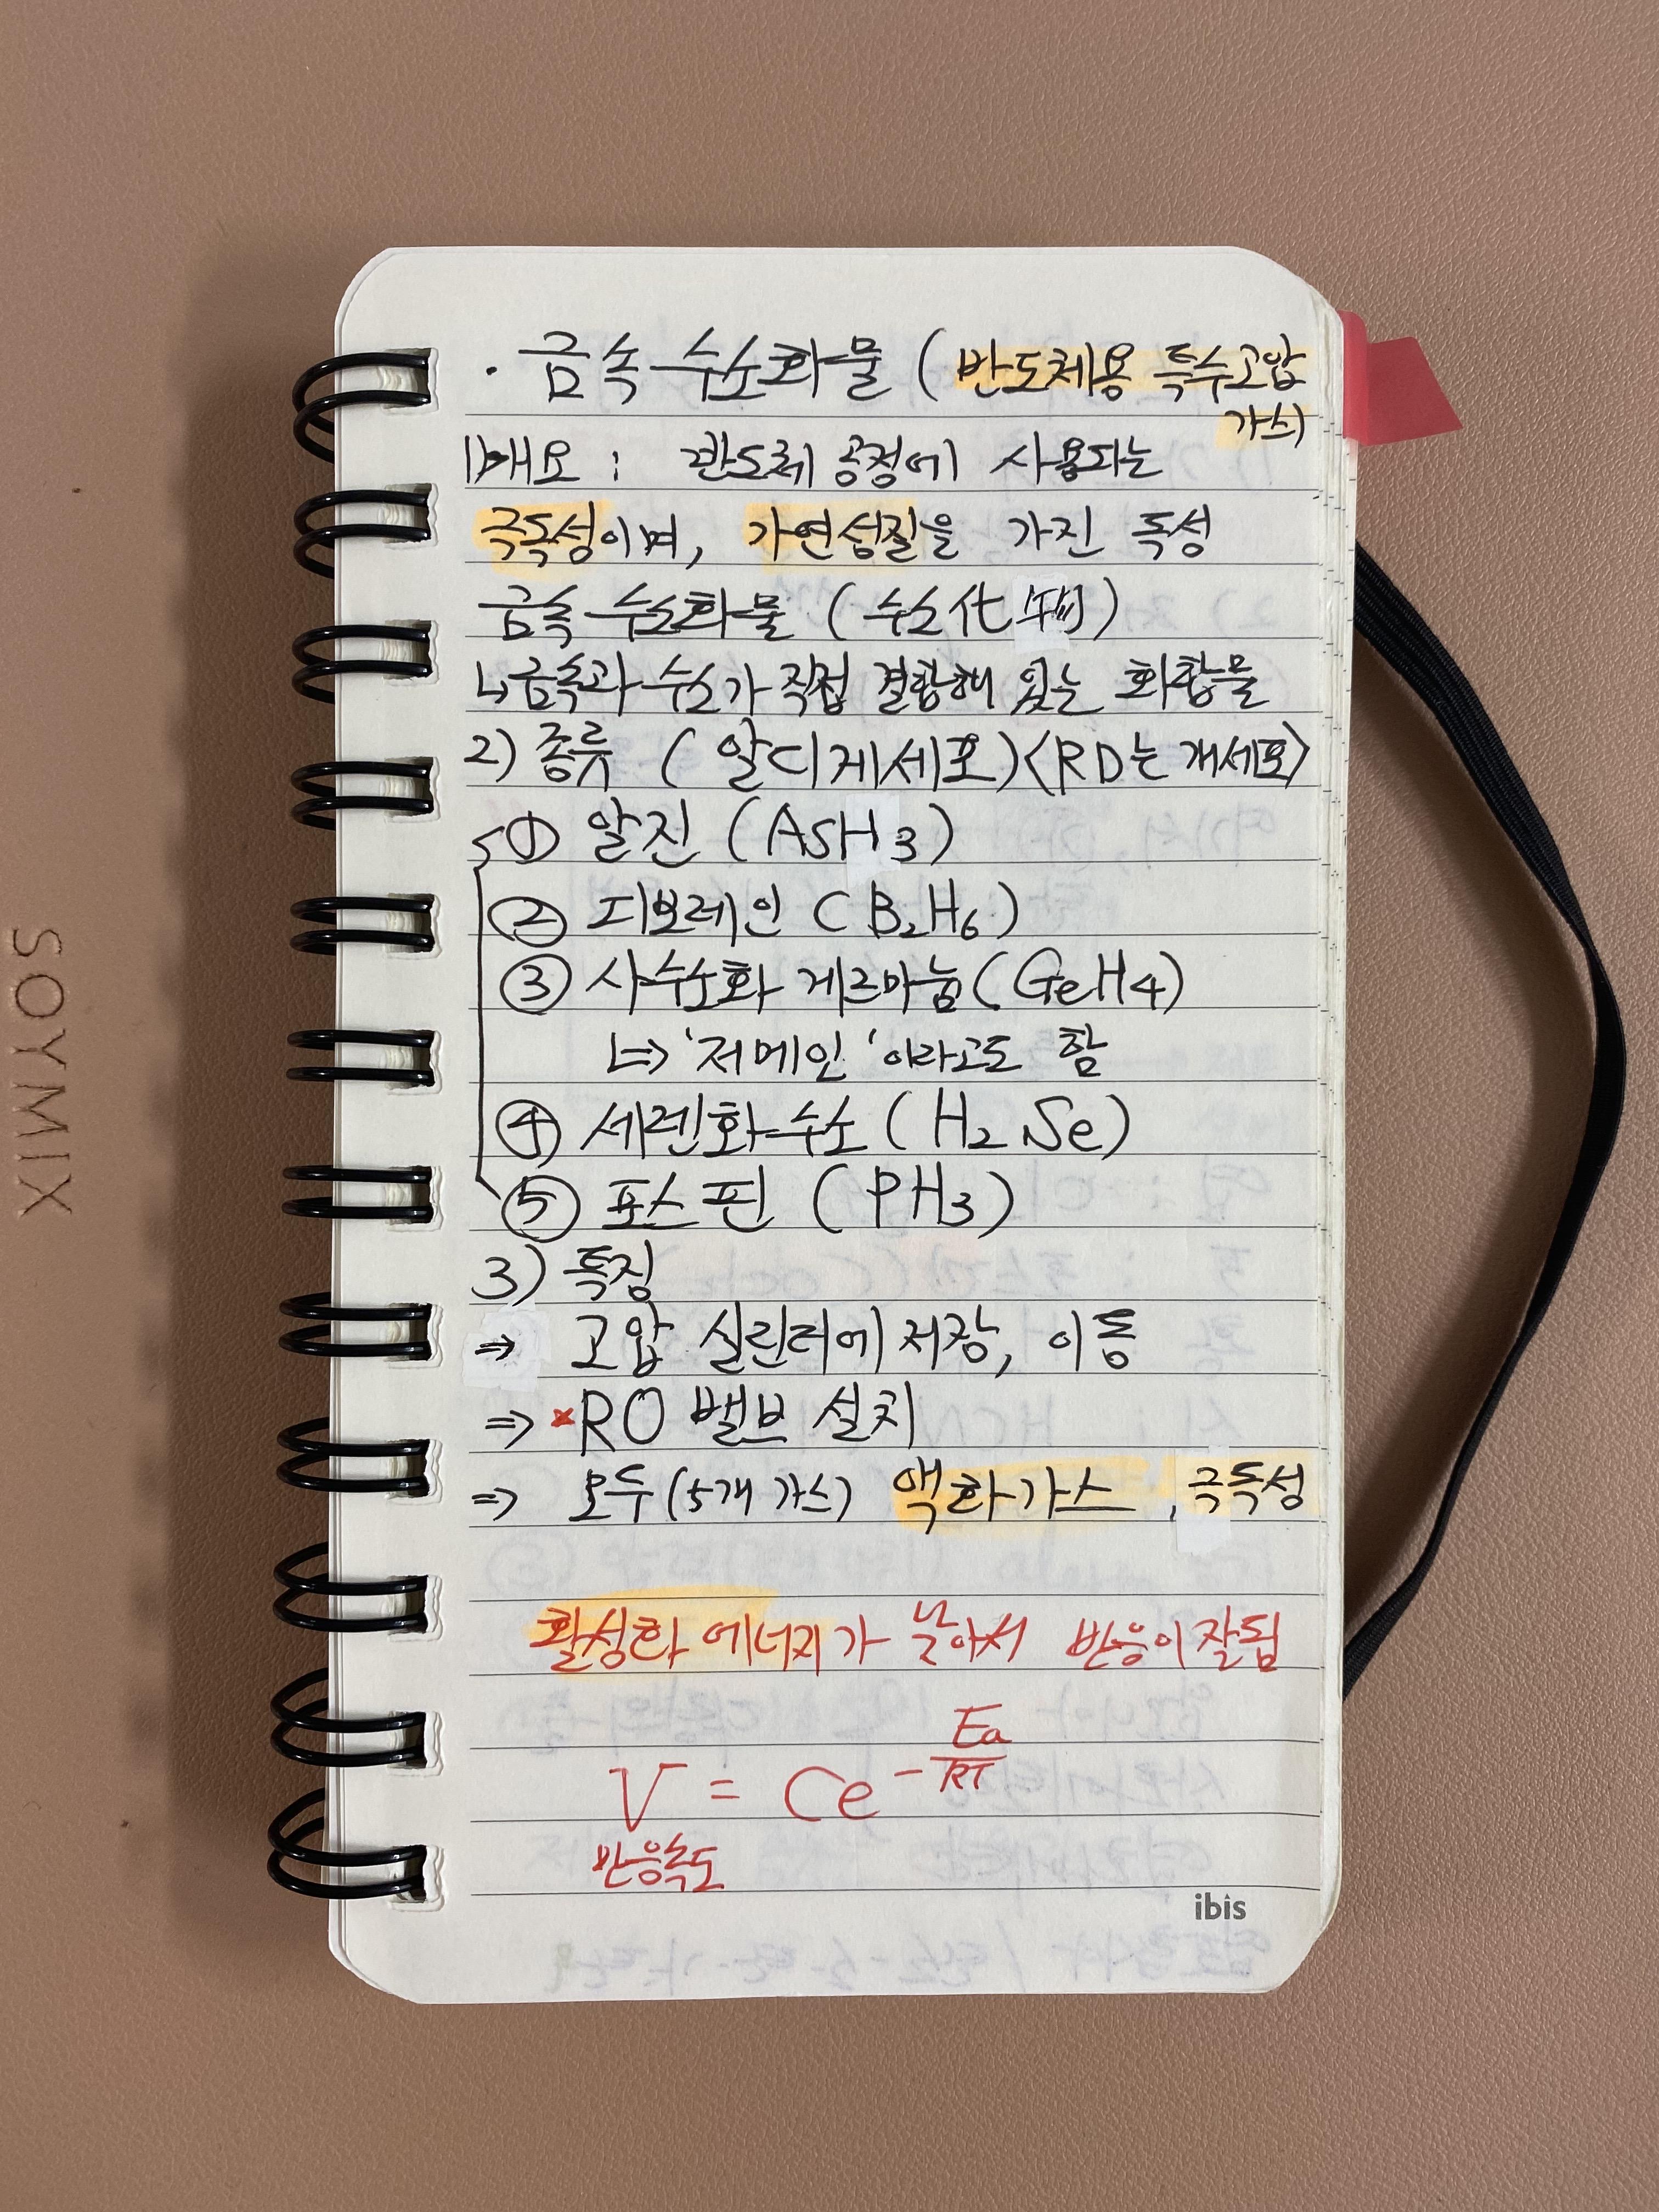 · 금속 수소화물 (반도체용 특수고압
가스)
1) 개요 : 반도체 공정에 사용되는
극독성이며, 가연성질을 가진 독성
금속 수소화물 (수소化物)
↳금속과 수소가 직접 결합해 있는 화합물
2) 종류 (알디게세포)<RD는 개세포>
① 알진 (AsH₃)
② 디보레인 (B₂H₆)
③ 사수소화 게르마늄(GeH₄)
↳> '저메인' 이라고도 함
④ 세렌화수소 (H₂Se)
⑤ 포스핀 (PH₃)
3) 특징
⇒ 고압 실린더에 저장, 이동
⇒ *RO 밸브 설치
⇒ 모두 (5개 가스) 액화가스, 극독성
활성화 에너지가 낮아서 반응이 잘됨
V = Ce^(-Ea/RT)
반응속도
ibis
SOYMIX